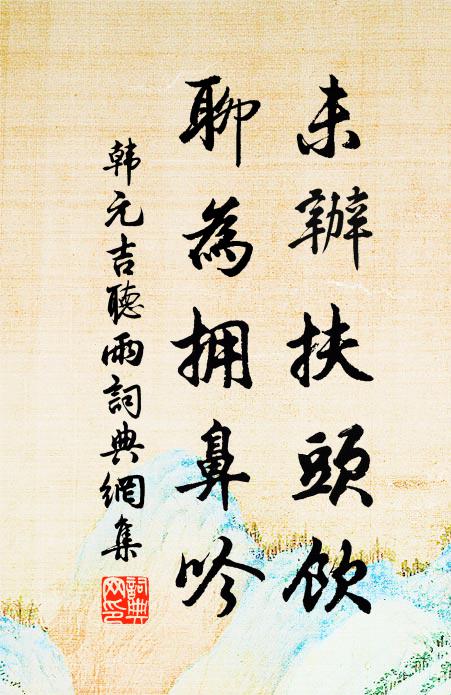 未辦扶頭飲
聊為擁鼻吟
韓元吉聽雨詞典網集
詞典網印